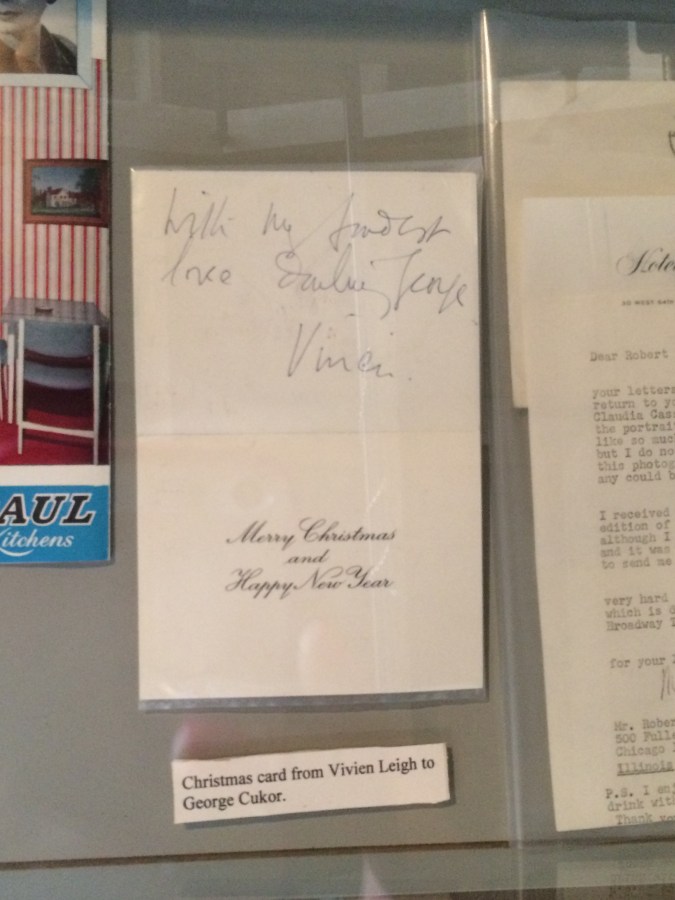 AUL
itchens
With my fondest
love Darling George
Vivien.
Merry Christmas
and
Happy New Year
Christmas card from Vivien Leigh to
George Cukor.
Hote
Dear Robert
your letter
return to y
Claudia Cass
the portrai
like so muc
but I do no
this photog
any could b
I received
edition of
although I
and it was
to send me
very hard
which is d
Broadway T
for your
Mr. Rober
500 Fulle
Chicago
Illinois
P.S. I enj
drink with
Thank you